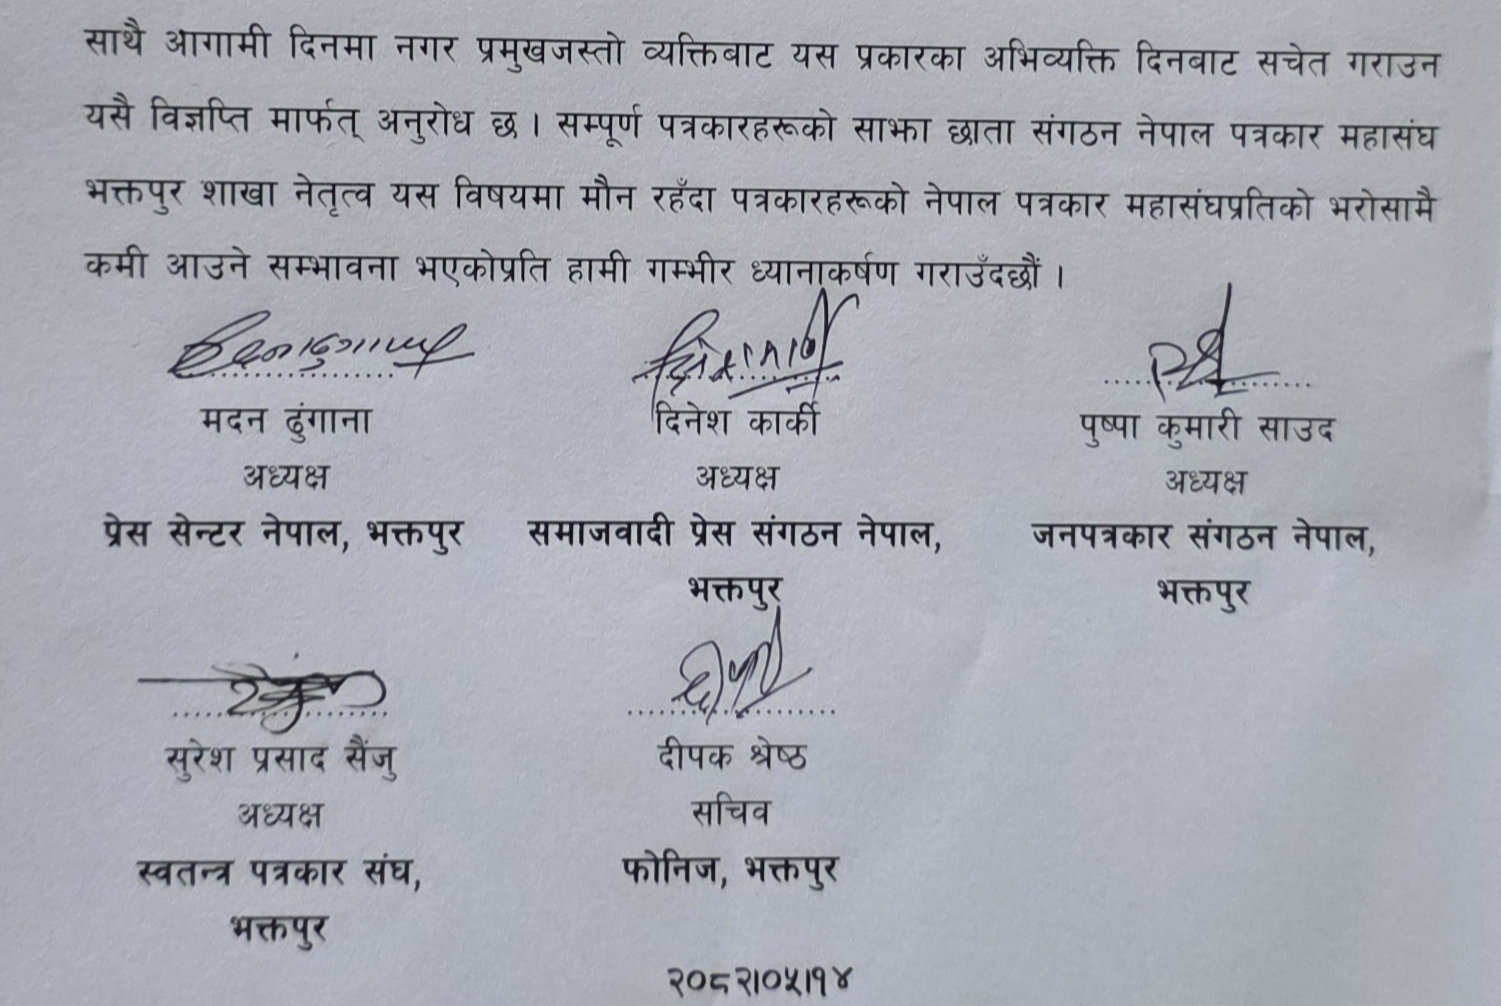 साथै आगामी दिनमा नगर प्रमुखजस्तो व्यक्तिबाट यस प्रकारका अभिव्यक्ति दिनबाट सचेत गराउन
यसै विज्ञप्ति मार्फत् अनुरोध छ । सम्पूर्ण पत्रकारहरूको साझा छाता संगठन नेपाल पत्रकार महासंघ
भक्तपुर शाखा नेतृत्व यस विषयमा मौन रहँदा पत्रकारहरूको नेपाल पत्रकार महासंघप्रतिको भरोसामै
कमी आउने सम्भावना भएकोप्रति हामी गम्भीर ध्यानाकर्षण गराउँदछौं ।
मदन ढुंगाना दिनेश कार्की पुष्पा कुमारी साउद
अध्यक्ष अध्यक्ष अध्यक्ष
प्रेस सेन्टर नेपाल, भक्तपुर समाजवादी प्रेस संगठन नेपाल, जनपत्रकार संगठन नेपाल,
भक्तपुर भक्तपुर
सुरेश प्रसाद सैंजु दीपक श्रेष्ठ
अध्यक्ष सचिव
स्वतन्त्र पत्रकार संघ, फोनिज, भक्तपुर
भक्तपुर
२०८२।०५।१४